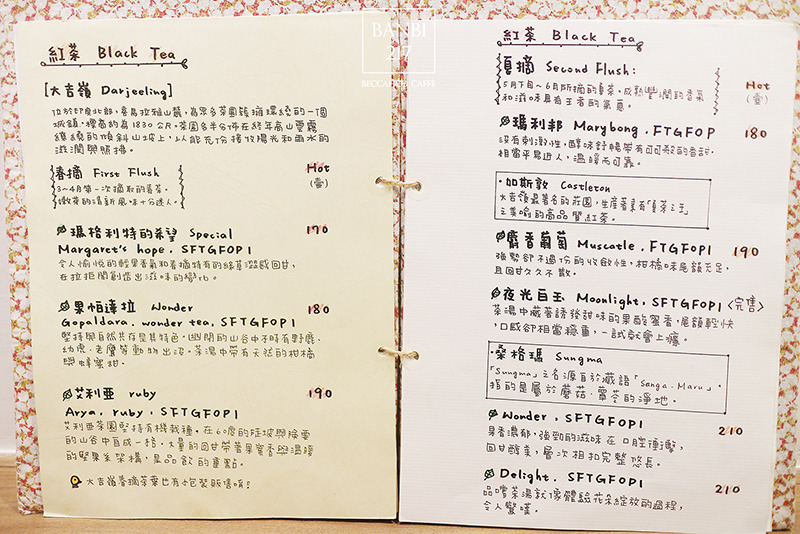 BANBI
217
BECCAFICO CAFFÈ
紅茶 Black Tea
[大吉嶺 Darjeeling]
位於印度北部，喜馬拉雅山麓，為眾多茶園簇擁環繞的一個
城鎮，標高約為1830公尺。茶園多半分佈在終年高山雲霧
繚繞的傾斜山坡上，以能充份接收陽光和雨水的
滋潤與照拂。
春摘 First Flush
Hot
(壺)
3~4月第一次摘取的春茶。
嫩芽的清新風味十分迷人。
瑪格利特的希望 Special
190
Margaret's hope. SFTGFOP1
令人愉悅的輕果香氣和春摘特有的綠草澀感回甘，
在拉拒間創造出滋味的變化。
果帕達拉 Wonder
180
Gopaldara. wonder tea. SFTGFOP1
堅持與自然共存是其特色，幽閉的山谷中不時有野鹿、
幼虎、老鷹等動物出沒。茶湯中帶有天然的柑橘
與蜂蜜甜。
艾利亞 ruby
190
Arya. ruby. SFTGFOP1
艾利亞茶園堅持有機栽種。在60度的陡坡與險要
的山谷中自成一格。大量的回甘帶著果蜜香與溫順
的堅果系架構，是品飲的重點。
大吉嶺春摘茶葉也有小包裝販售唷！
紅茶 Black Tea
夏摘 Second Flush:
Hot
(壺)
5月下旬~6月所摘的夏茶。成熟豐潤的香氣
和滋味具有王者的氣息。
瑪利邦 Marybong. FTGFOP
180
沒有刺激性，醇味舒暢帶有可可般的香甜，
相當平易近人，溫暖而可靠。
·加斯敦 Castleton
大吉嶺最著名的莊園，生產著素有「夏茶之王」
之美喻的高品質紅茶。
麝香葡萄 Muscatle. FTGFOP1
190
強勁卻不過份的收斂性，柑橘味尾韻充足，
且回甘久久不散。
夜光白玉 Moonlight. SFTGFOP1〈完售〉
茶湯中藏著誘發甜味的果酸蜜香，尾韻輕快
，口感卻相當穩重，一試就會上癮。
·桑格瑪 Sungma
「Sungma」之名源自於藏語「Sanga. Maru」。
指的是屬於蘑菇、靈芝的淨地。
Wonder. SFTGFOP1
210
果香濃郁，強勁的滋味在口腔衝擊，
回甘酵柔，層次相扣完整悠長。
Delight. SFTGFOP1
210
品嚐茶湯就像體驗花朵綻放的過程，
令人驚嘆。